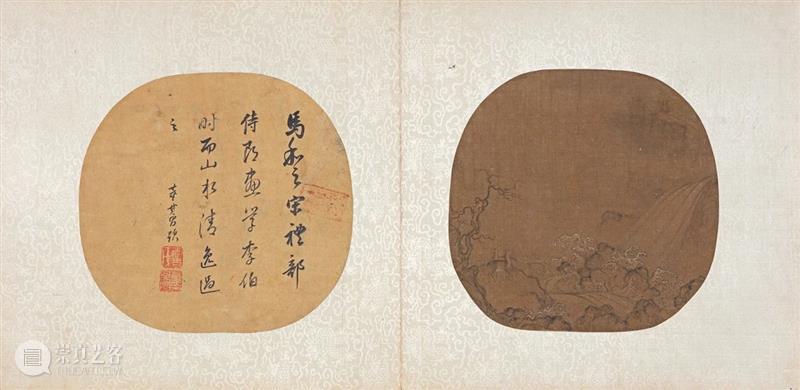 馬和之宋禮部
侍郎畫學李伯
時而山水清逸過
之
董其昌跋
崇真艺客